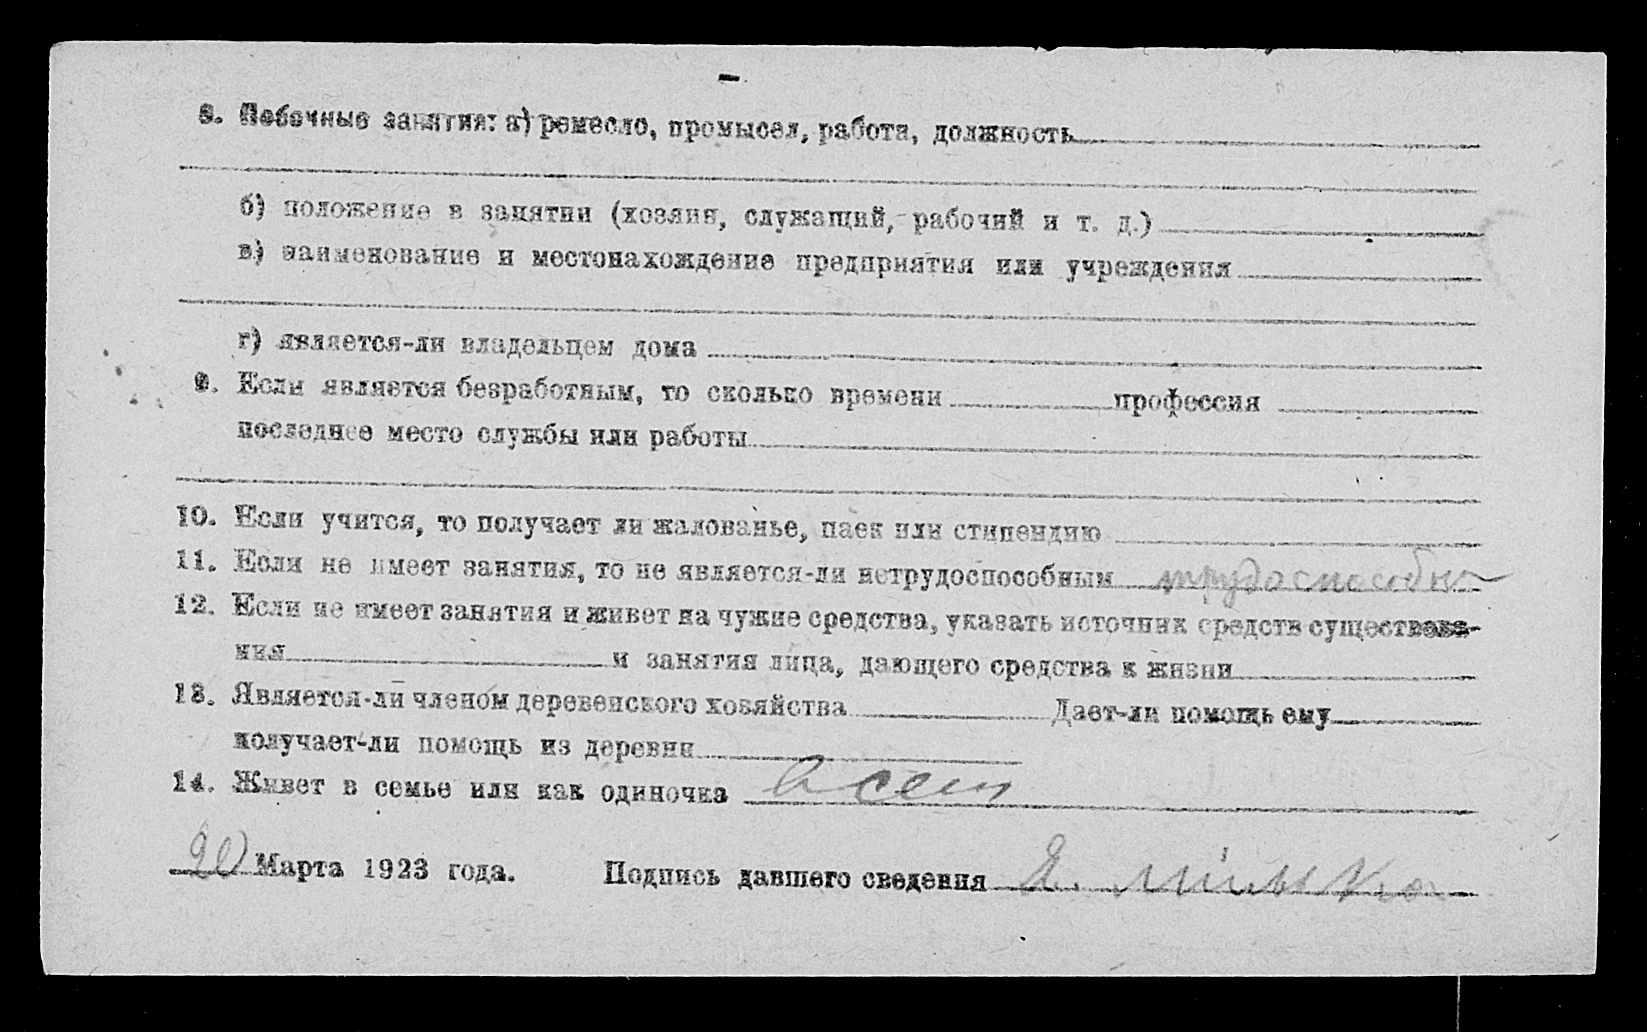 8. Побочные занятия: а) ремесло, промысел, работа, должность
б) положение в занятии (хозяин, служащий, рабочий и т. д.)
в) наименование и местонахождение предприятия или учреждения
г) является-ли владельцем дома
9. Если является безработным, то сколько времени профессия
последнее место службы или работы
10. Если учится, то получает ли жалованье, паек или стипендию
11. Если не имеет занятия, то не является-ли нетрудоспособным трудоспособн
12. Если не имеет занятия и живет на чужие средства, указать источник средств существова-
ния и занятия лица, дающего средства к жизни
13. Является-ли членом деревенского хозяйства Дает-ли помощь ему
получает-ли помощь из деревни
14. Живет в семье или как одиночка в сем
20 Марта 1923 года. Подпись давшего сведения